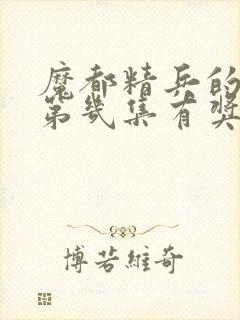 魔都精兵的
第几集有奖
博若維奇